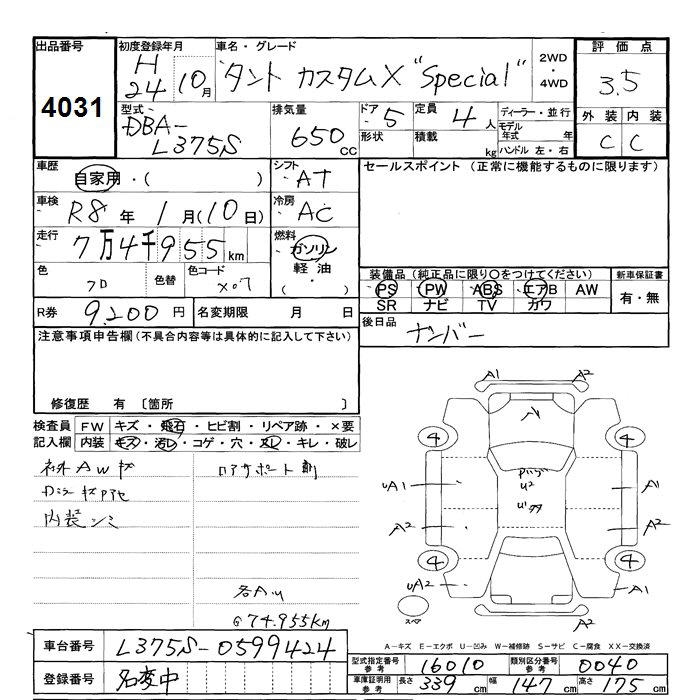 出品番号
4031
初度登録年月
H
24 10月
車名・グレード
タント カスタムX "Special"
2WD
・
4WD
評価点
3.5
型式
DBA-
L375S
排気量
650 CC
ドア 5
形状
定員 4 人
積載 kg
ディーラー・並行
モデル年式 年
ハンドル 左・右
外装 内装
C C
車歴
自家用・( )
シフト
AT
セールスポイント (正常に機能するものに限ります)
車検
R8年 1月(10日)
冷房
AC
走行
7万4千955km
燃料
ガソリン
軽油・
( )
色
色替
色コード
X07
装備品 (純正品に限り○をつけてください)
PS PW ABS エアB AW
SR ナビ TV カワ
新車保証書
有・無
R券 9,200円
名変期限 月 日
後日品
ナンバー
注意事項申告欄(不具合内容等は具体的に記入して下さい)
修復歴 有 〔箇所 〕
検査員記入欄
FW キズ・飛石・ヒビ割・リペア跡・×要
内装 キズ・汚レ・コゲ・穴・スレ・キレ・破レ
内装シミ
@74.955km
A1 A2
A
4 4
UA1
U2
A1
A2
A2
4 4
UA2
A1
A2
スペア
A-キズ E-エクボ U-凹み W-補修跡 S-サビ C-腐食 XX-交換済
車台番号 L375S-0599424
登録番号 名変中
型式指定番号参考 16010
類別区分番号参考 0040
車庫証明用参考 長さ 339cm 幅 147cm 高さ 175cm